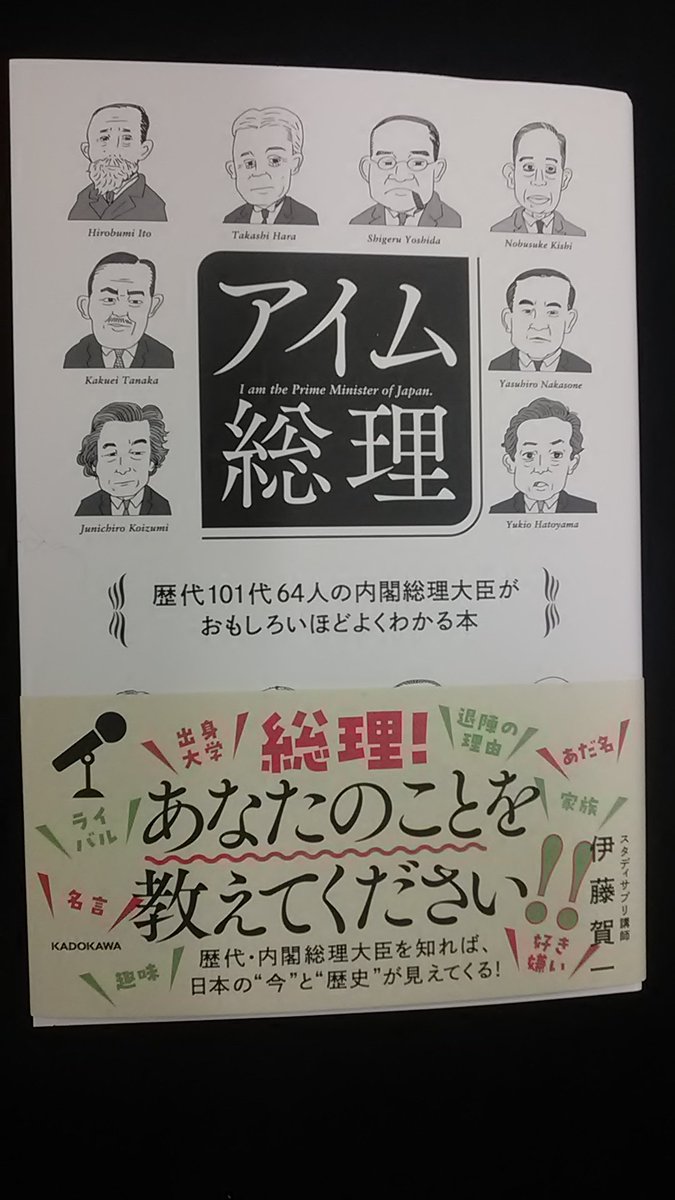 Hirobumi Ito
Takashi Hara
Shigeru Yoshida
Nobusuke Kishi
Kakuei Tanaka
Yasuhiro Nakasone
Junichiro Koizumi
Yukio Hatoyama
アイム
I am the Prime Minister of Japan.
総理
歴代101代64人の内閣総理大臣が
おもしろいほどよくわかる本
出身
大学
総理!
退陣の
理由
あだ名
ライ
バル
あなたのことを
家族
名言
教えてください!!
スタディサプリ講師
伊藤賀一
KADOKAWA
趣味
好き
嫌い
歴代・内閣総理大臣を知れば、
日本の“今”と“歴史”が見えてくる!